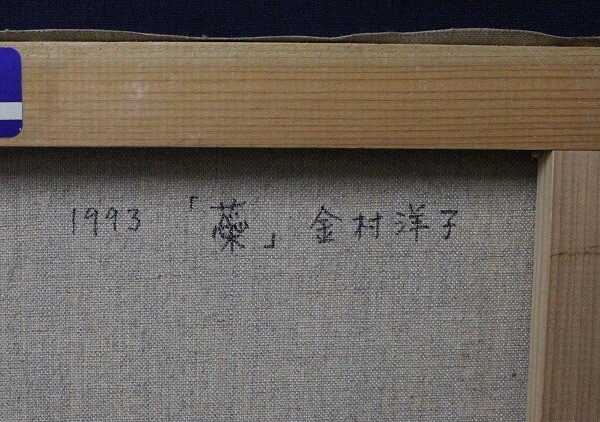 1993 「蘂」 金村洋子